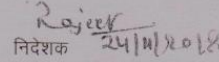 Rajeev
निदेशक 24/11/2018